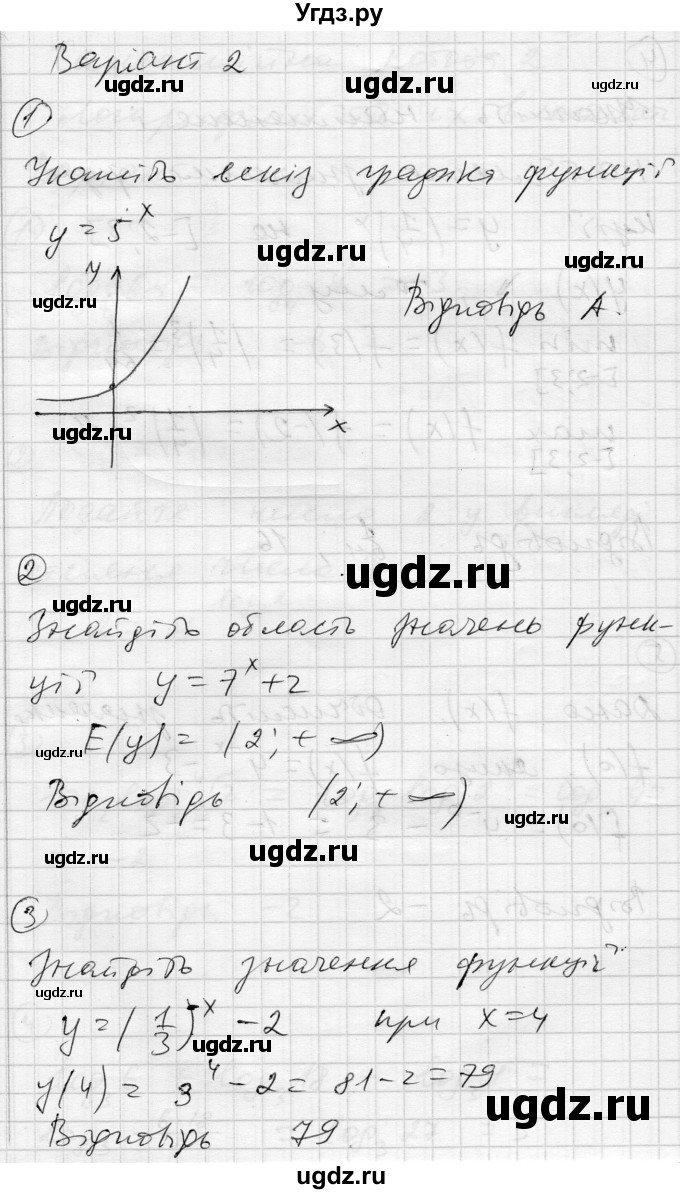 Угдз.ру
Варіант 2
ugdz.ru ugdz.ru ugdz.ru
1
Укажіть ескіз графіка функції
y = 5^x
ugdz.ru ugdz.ru
y
ugdz.ru
Відповідь А.
x
ugdz.ru ugdz.ru
2
ugdz.ru
ugdz.ru
Знайдіть область значень функ-
ції y = 7^x + 2
E(y) = (2; +∞)
ugdz.ru ugdz.ru
Відповідь (2; +∞)
ugdz.ru
ugdz.ru ugdz.ru
3
Знайдіть значення функції
ugdz.ru ugdz.ru
y = (1/3)^-x - 2 при x = 4
ugdz.ru
y(4) = 3^4 - 2 = 81 - 2 = 79
ugdz.ru
Відповідь 79.
ugdz.ru
ugdz.ru